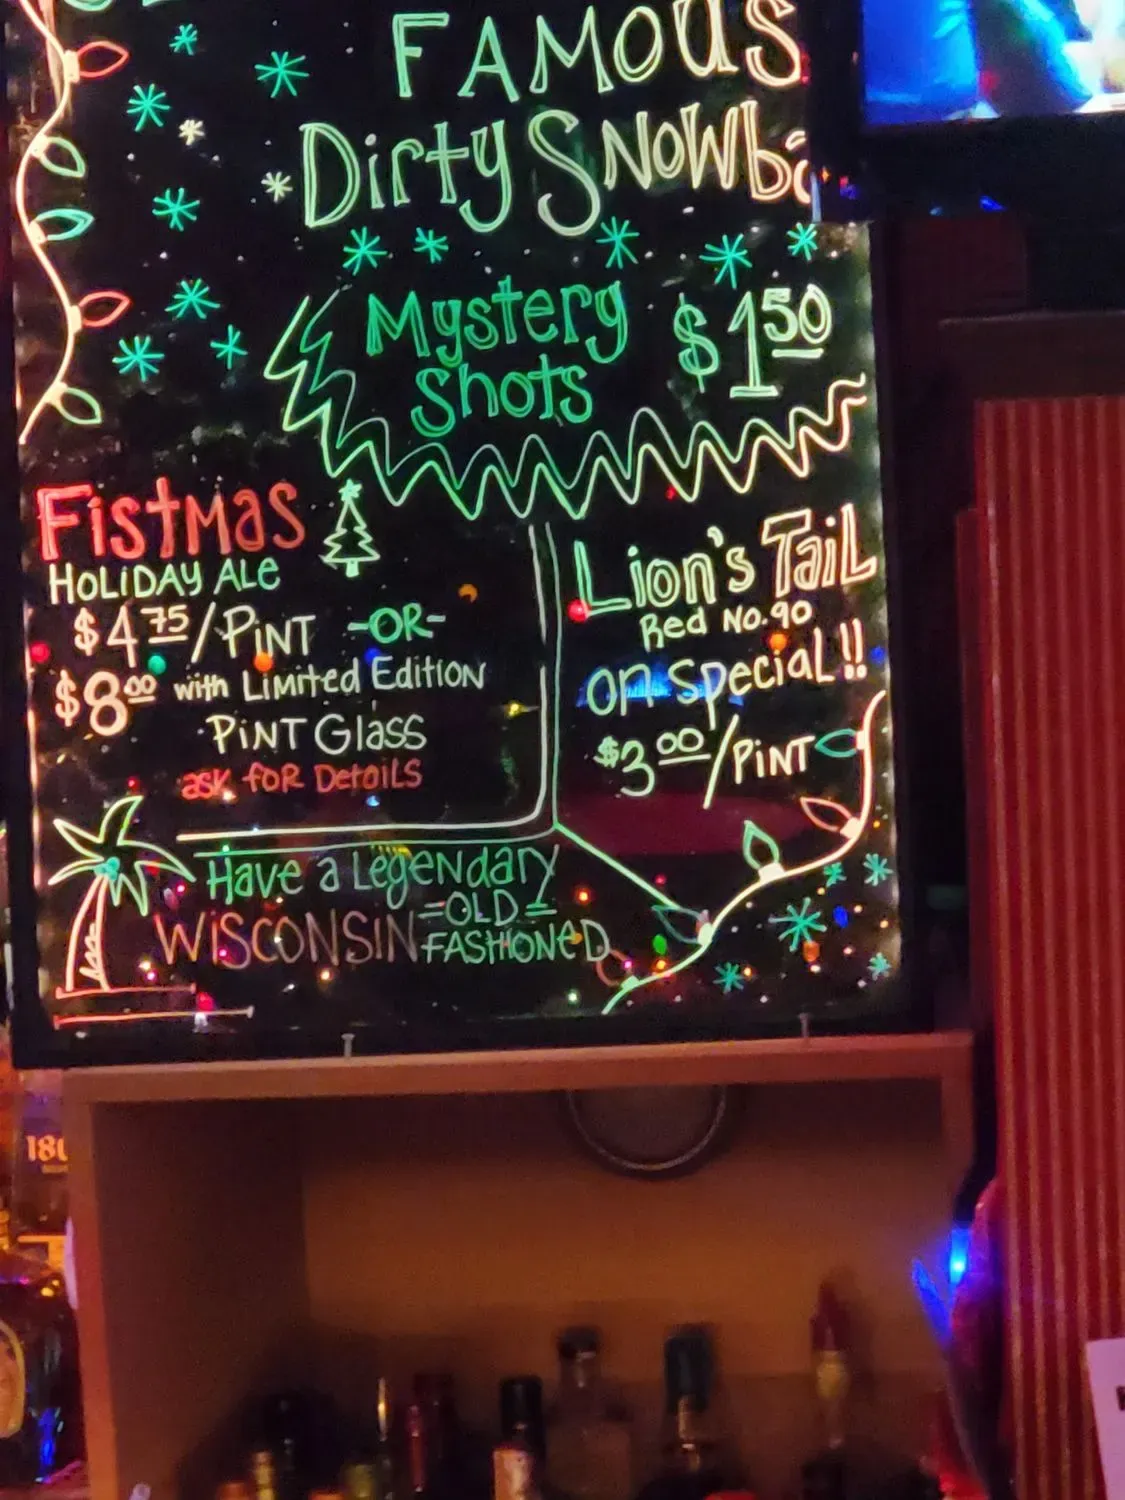 FAMOUS
Dirty Snowba
Mystery
Shots
$1.50
Fistmas
HOLIDAY ALE
$4.75/PINT -OR-
$8.00 with Limited Edition
PINT Glass
ask for Details
Lion's Tail
Red No. 90
on Special!!
$3.00/PINT
Have a Legendary
WISCONSIN OLD
FASHIONED
180